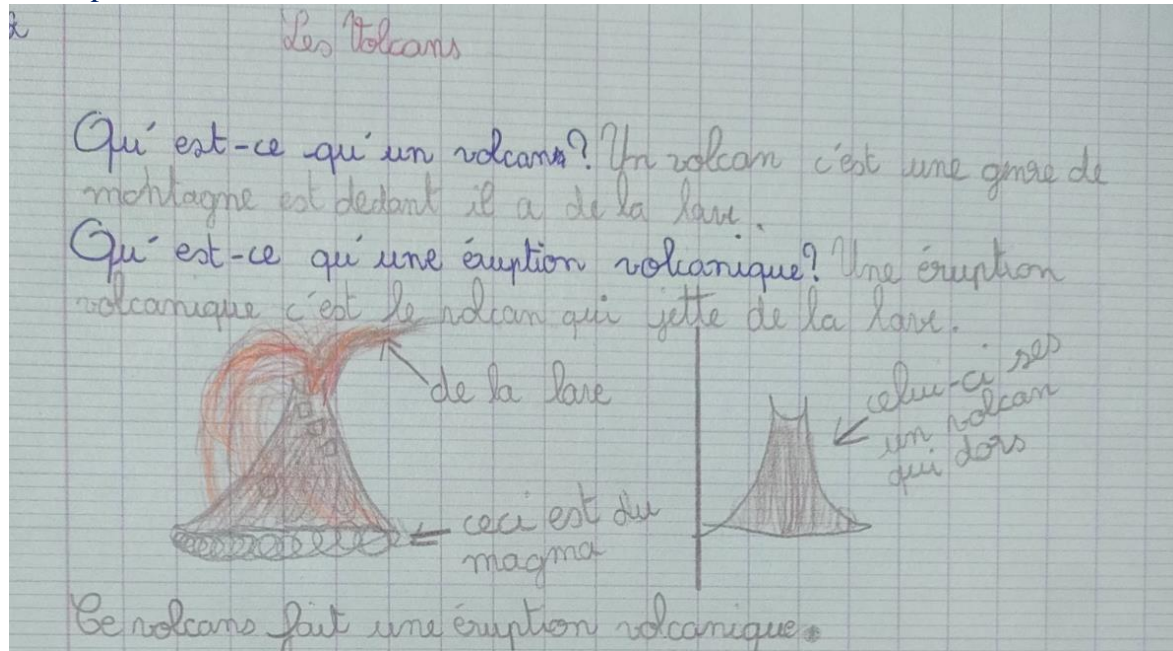 Les Volcans
Qu'est-ce qu'un volcan? Un volcan c'est une gmre de
montagne est dedant il a de la lave.
Qu'est-ce qu'une éruption volcanique? Une éruption
volcanique c'est le volcan qui jette de la lave.
de la lave
celui-ci ses
un volcan
qui dors
ceci est du
magma
Ce volcans fait une éruption volcanique.